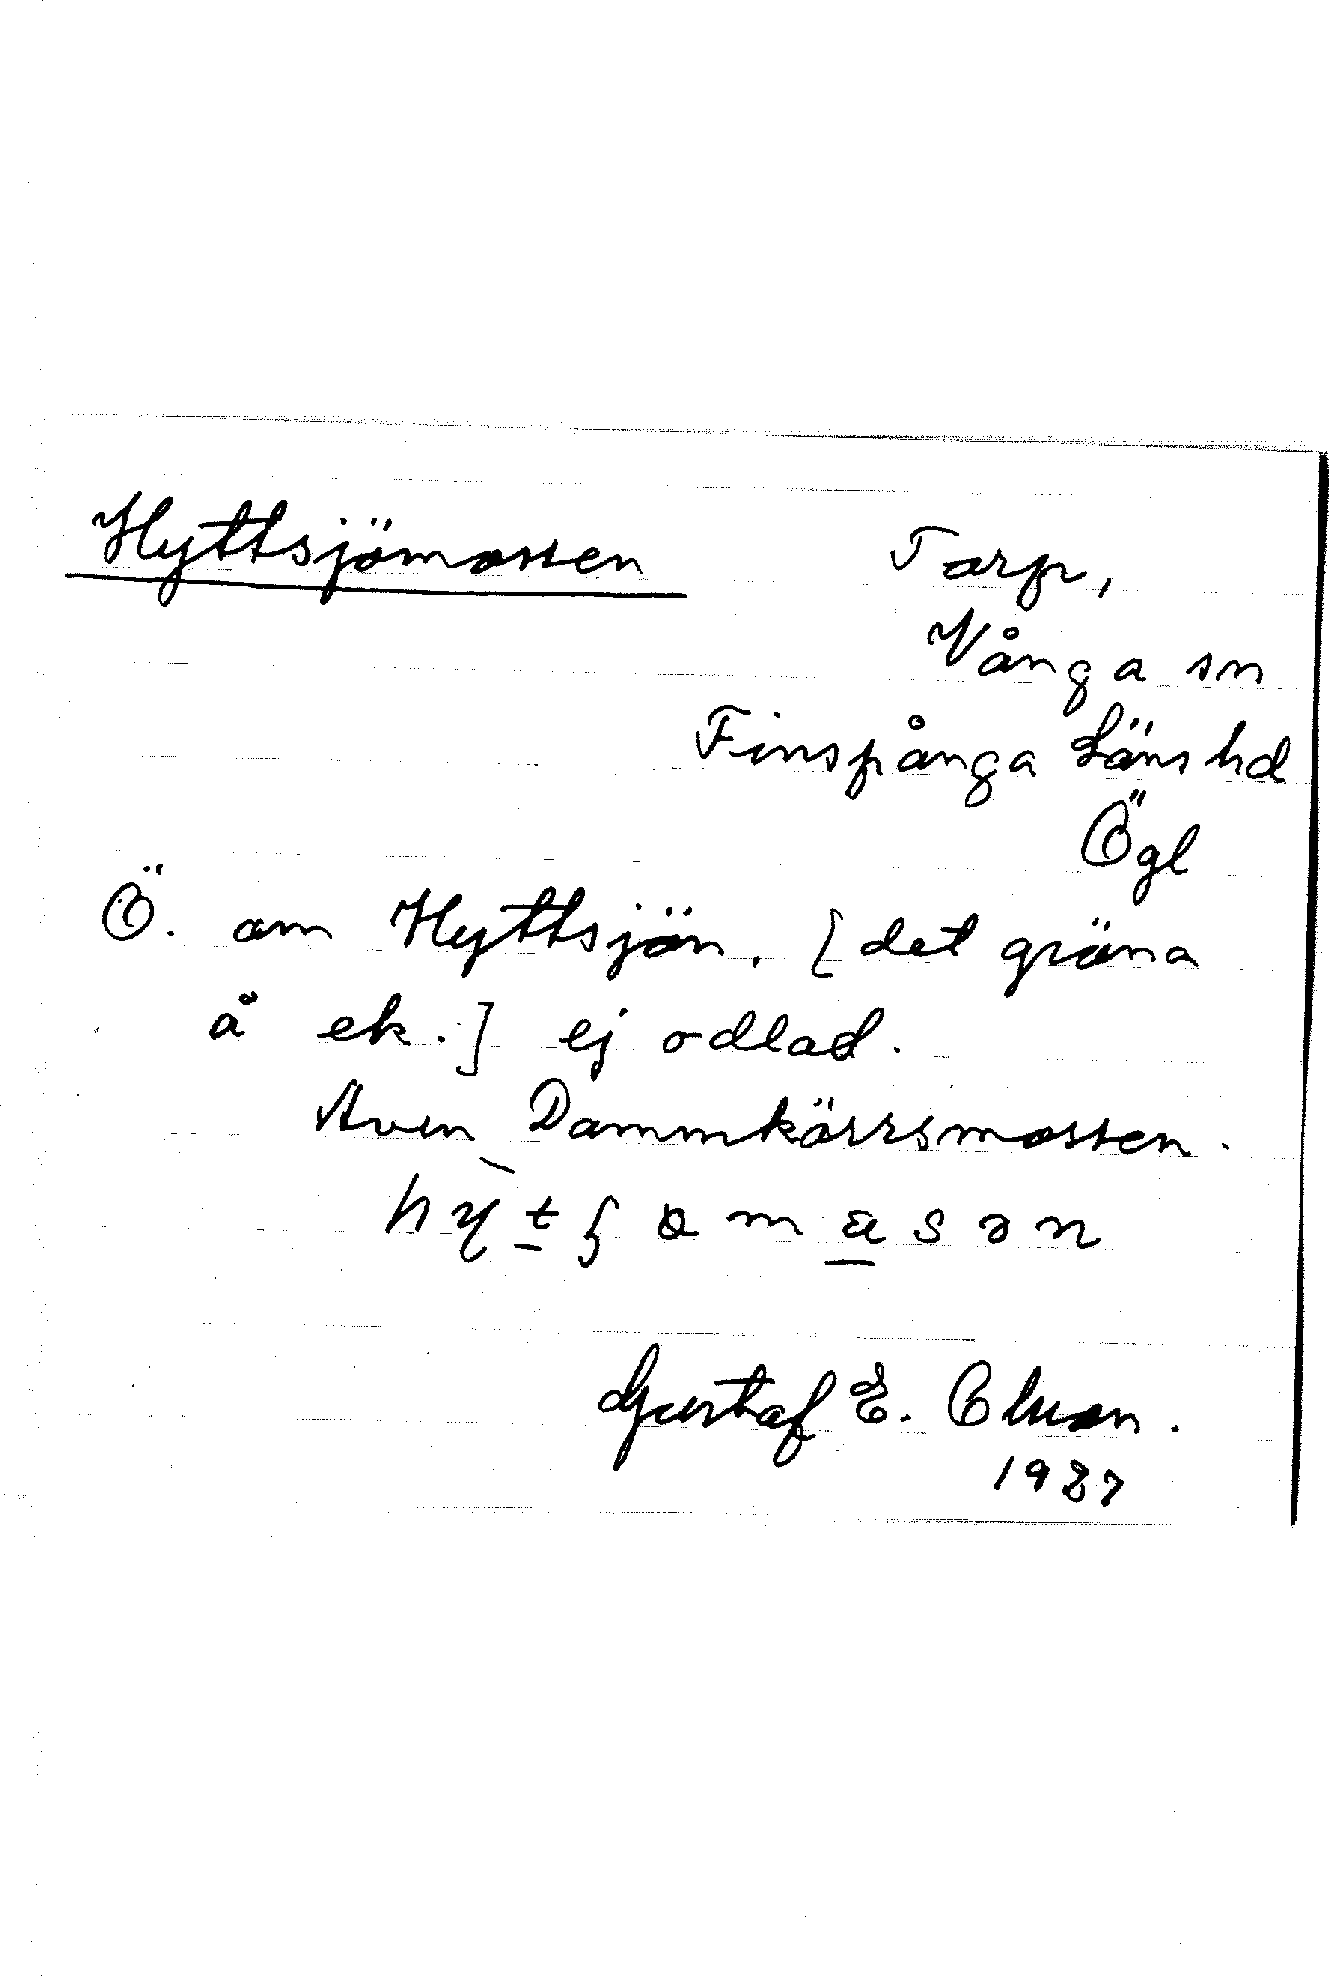 Hyttsjömossen
Torp,
Vånga sn
Finspånga Läns hd
Ögl
Ö. om Hyttsjön. [det gröna
å ek.] ej odlad.
Även Dammkärrsmossen.
Gustaf E. Olsson.
1927